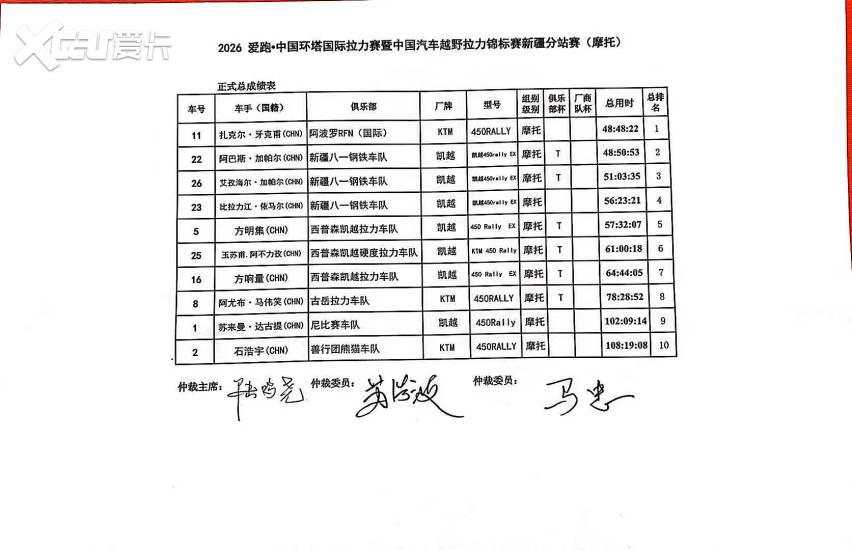 爱卡
2026 爱跑•中国环塔国际拉力赛暨中国汽车越野拉力锦标赛新疆分站赛（摩托）
正式总成绩表
车号 车手（国籍） 俱乐部 厂牌 型号 组别级别 俱乐部杯 厂商队杯 总用时 总排名
11 扎克尔·牙克甫(CHN) 阿波罗RFN（国际） KTM 450RALLY 摩托 48:48:22 1
22 阿巴斯·加帕尔(CHN) 新疆八一钢铁车队 凯越 凯越450rally EX 摩托 T 48:50:53 2
26 艾孜海尔·加帕尔(CHN) 新疆八一钢铁车队 凯越 凯越450rally EX 摩托 T 51:03:35 3
23 比拉力江·依马尔(CHN) 新疆八一钢铁车队 凯越 凯越450rally EX 摩托 56:23:21 4
5 方明集(CHN) 西普森凯越拉力车队 凯越 450 Rally EX 摩托 T 57:32:07 5
25 玉苏甫.阿不力孜(CHN) 西普森凯越硬度拉力车队 凯越 KTM 450 Rally 摩托 T 61:00:18 6
16 方响量(CHN) 西普森凯越拉力车队 凯越 450 Rally EX 摩托 T 64:44:05 7
8 阿尤布·马伟笑(CHN) 古岳拉力车队 KTM 450RALLY 摩托 T 78:28:52 8
1 苏来曼·达古提(CHN) 尼比赛车队 凯越 450Rally 摩托 102:09:14 9
2 石浩宇(CHN) 善行团熊猫车队 KTM 450RALLY 摩托 108:19:08 10
仲裁主席： 仲裁委员： 仲裁委员： 马忠